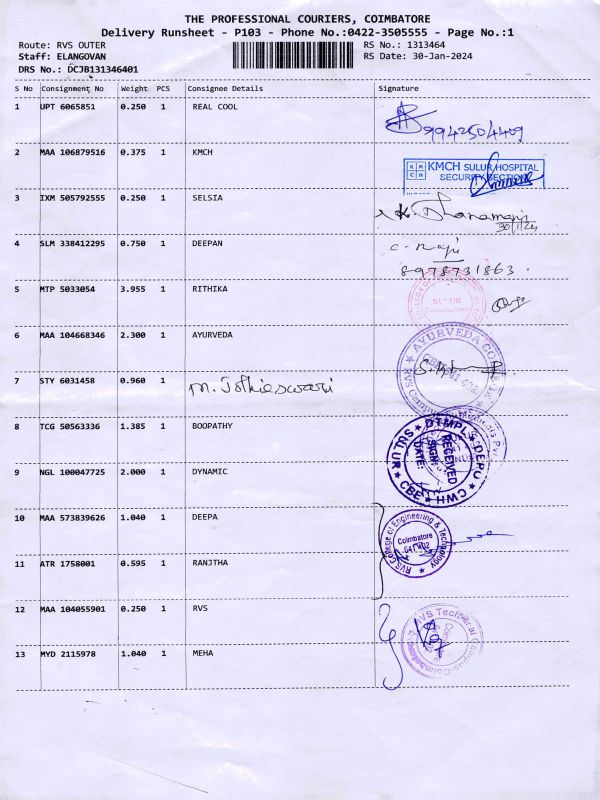 THE PROFESSIONAL COURIERS, COIMBATORE
Delivery Runsheet - P103 - Phone No.:0422-3505555 - Page No.:1
Route: RVS OUTER
RS No.: 1313464
Staff: ELANGOVAN
RS Date: 30-Jan-2024
DRS No.: DCJB131346401
S No Consignment No Weight PCS Consignee Details Signature
1 UPT 6065851 0.250 1 REAL COOL
9942504409
2 MAA 106879516 0.375 1 KMCH
KMCH SULUR HOSPITAL
SECURITY SECTION
3 IXM 505792555 0.250 1 SELSIA
K. Dhanamani
30/1/24
4 SLM 338412295 0.750 1 DEEPAN
C. Raji
8978731863
5 MTP 5033054 3.955 1 RITHIKA
SULUR
Coimbatore
6 MAA 104668346 2.300 1 AYURVEDA
AYURVEDA COLLEGE
7 STY 6031458 0.960 1 M. Jothieswari
8 TCG 50563336 1.385 1 BOOPATHY
DTMPL DEPU HWC CBE SULUR
RECEIVED
SIGN:
DATE:
9 NGL 100047725 2.000 1 DYNAMIC
10 MAA 573839626 1.040 1 DEEPA
RVS College of Engineering & Technology
Coimbatore
641 402
11 ATR 1758001 0.595 1 RANJTHA
12 MAA 104055901 0.250 1 RVS
RVS Technical Campus-Coimbatore
13 MYD 2115978 1.040 1 MEHA